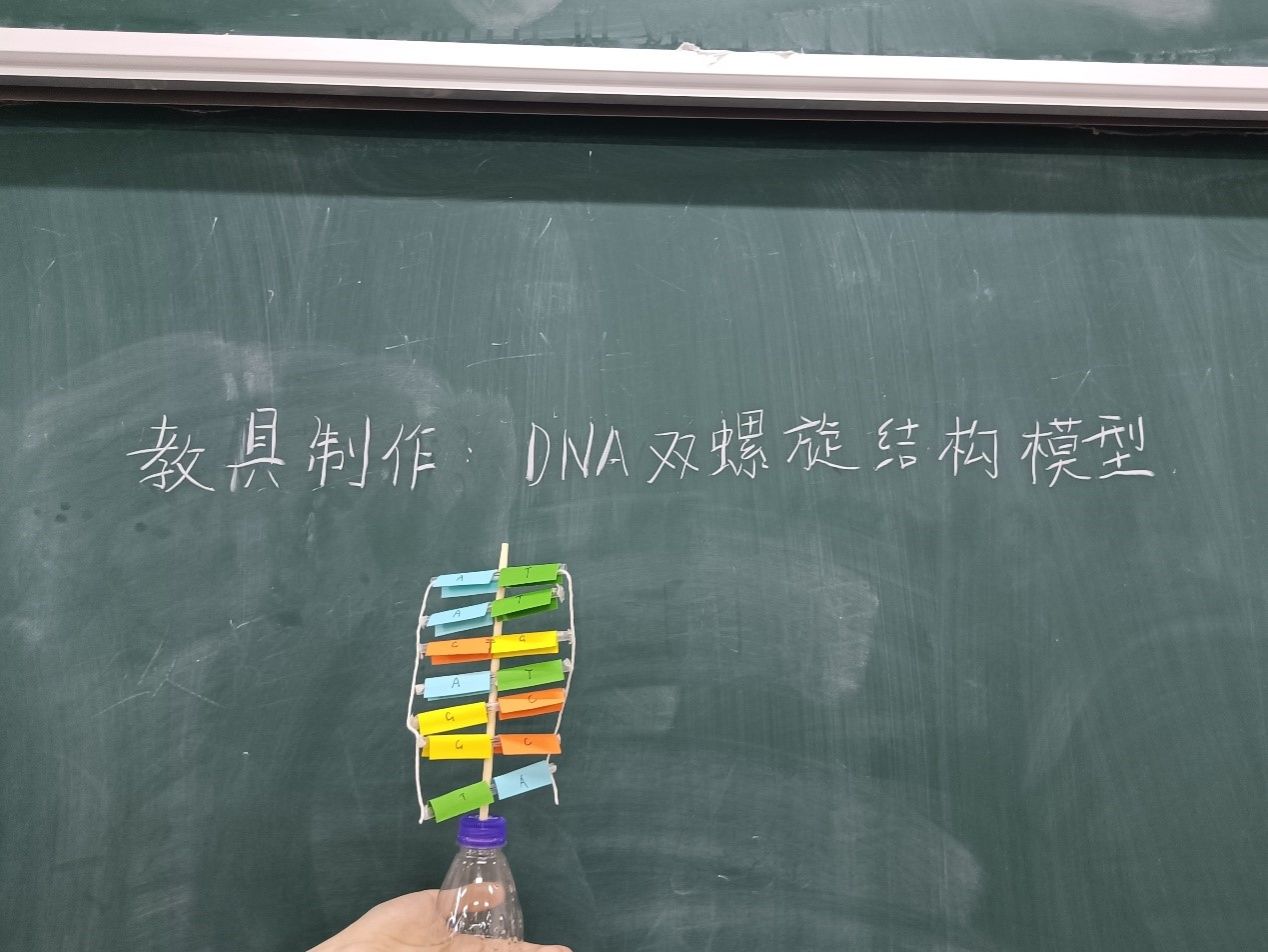 教具制作：DNA双螺旋结构模型
A T
A T
C G
A T
G C
G C
T A